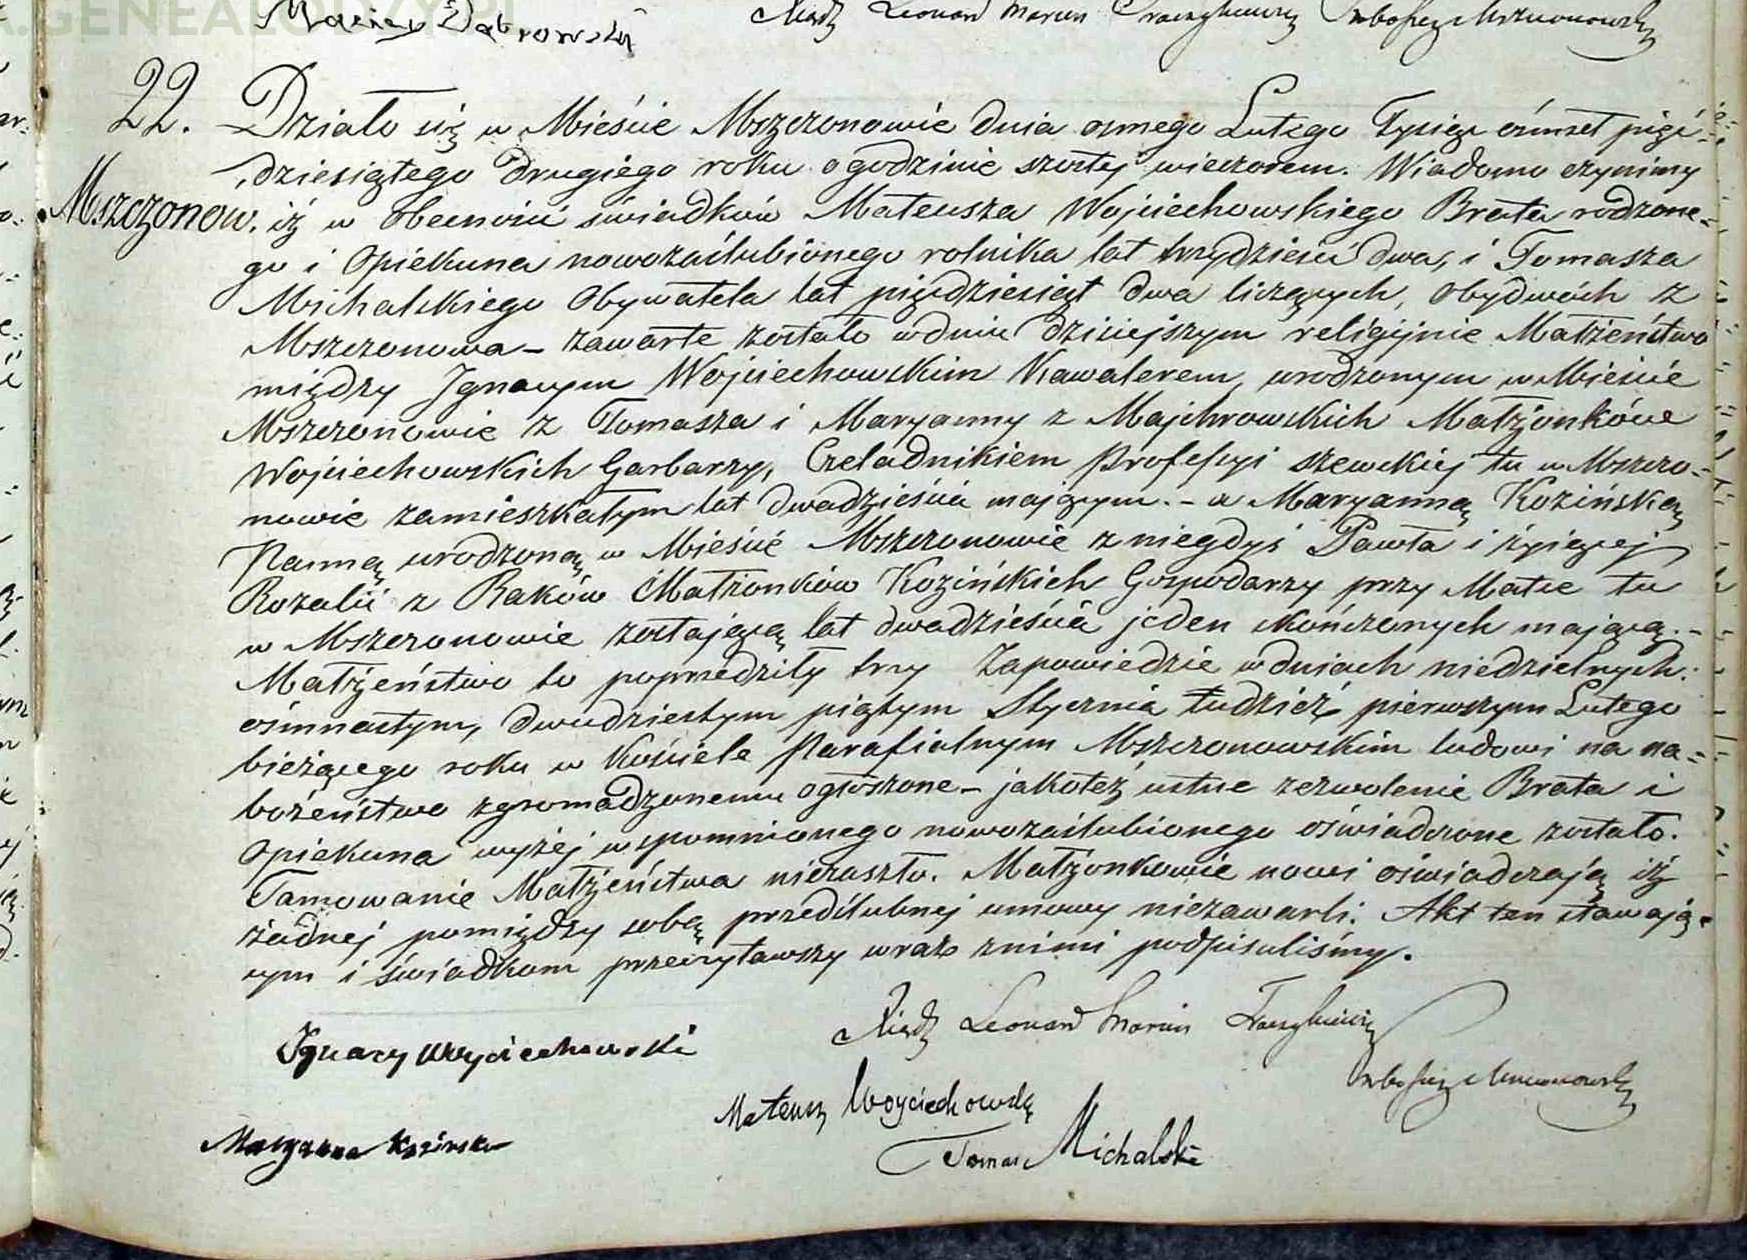 A.GENEALODZY.PL
Maciey Dąbrowski
Xiądz Leonard Marcin
22. Działo się w Mieście Mszczonowie dnia osmego Lutego Tysiąc ośmset pięć-
dziesiątego drugiego roku o godzinie szostej wieczorem. Wiadomo czynimy
Mszczonow. iż w obecności świadków Mateusza Wojciechowskiego Brata rodzone-
go i Opiekuna nowozaślubionego rolnika lat trzydzieści dwa, i Tomasza
Michalskiego Obywatela lat pięćdziesiąt dwa liczących, obydwóch z
Mszczonowa – zawarte zostało w dniu dzisiejszym religijnie Małżeństwo
między Ignacym Wojciechowskim Kawalerem, urodzonym w Mieście
Mszczonowie z Tomasza i Maryanny z Majchrowskich Małżonków
Wojciechowskich Garbarzy, Czeladnikiem Professyi szewckiej tu w Mszczo-
nowie zamieszkałym lat dwadzieścia mającym. – a Maryanną Kozińską
Panną urodzoną w Mieście Mszczonowie z niegdyś Pawła i żyiącej
Rozalii z Raków Małżonków Kozińskich Gospodarzy przy Matce tu
w Mszczonowie zostającą lat dwadzieścia jeden skończonych mającą. –
Małżeństwo to poprzedziły trzy Zapowiedzie w dniach niedzielnych:
ośmnastym, dwudziestym piątym Stycznia tudzież pierwszym Lutego
bieżącego roku w Kościele Parafialnym Mszczonowskim ludowi na na-
bożeństwo zgromadzonemu ogłoszone – jakoteż ustne zezwolenie Brata i
Opiekuna wyżej wspomnionego nowozaślubionego oświadczone zostało.
Tamowanie Małżeństwa niezaszło. Małżonkowie nowi oświadczają iż
żadnej pomiędzy sobą przedślubnej umowy niezawarli. Akt ten stawają-
cym i świadkom przeczytawszy wraz z nimi podpisaliśmy.
Xiądz Leonard Marcin
Ignacy Woyciechowski
Mateusz Woyciechowski
Maryanna Kozinska
Tomasz Michalski